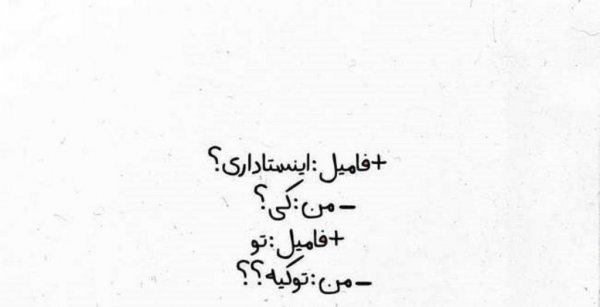 +فامیل:اینستاداری؟
_ من:کی؟
+فامیل:تو
_ من:توکیه؟؟